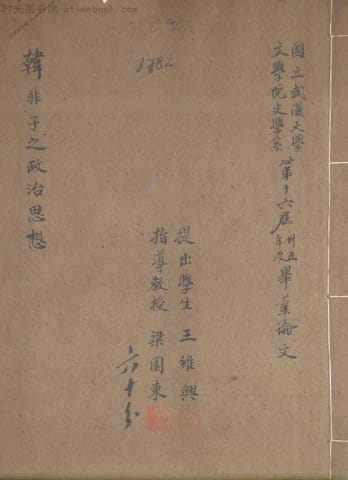 时光图书馆 - atimebook.com
國立武漢大學
文學院史學系
第十六屆
卅五
年度
畢業論文
提出學生 王維興
指導教授 梁園東
六十分
韓非子之政治思想